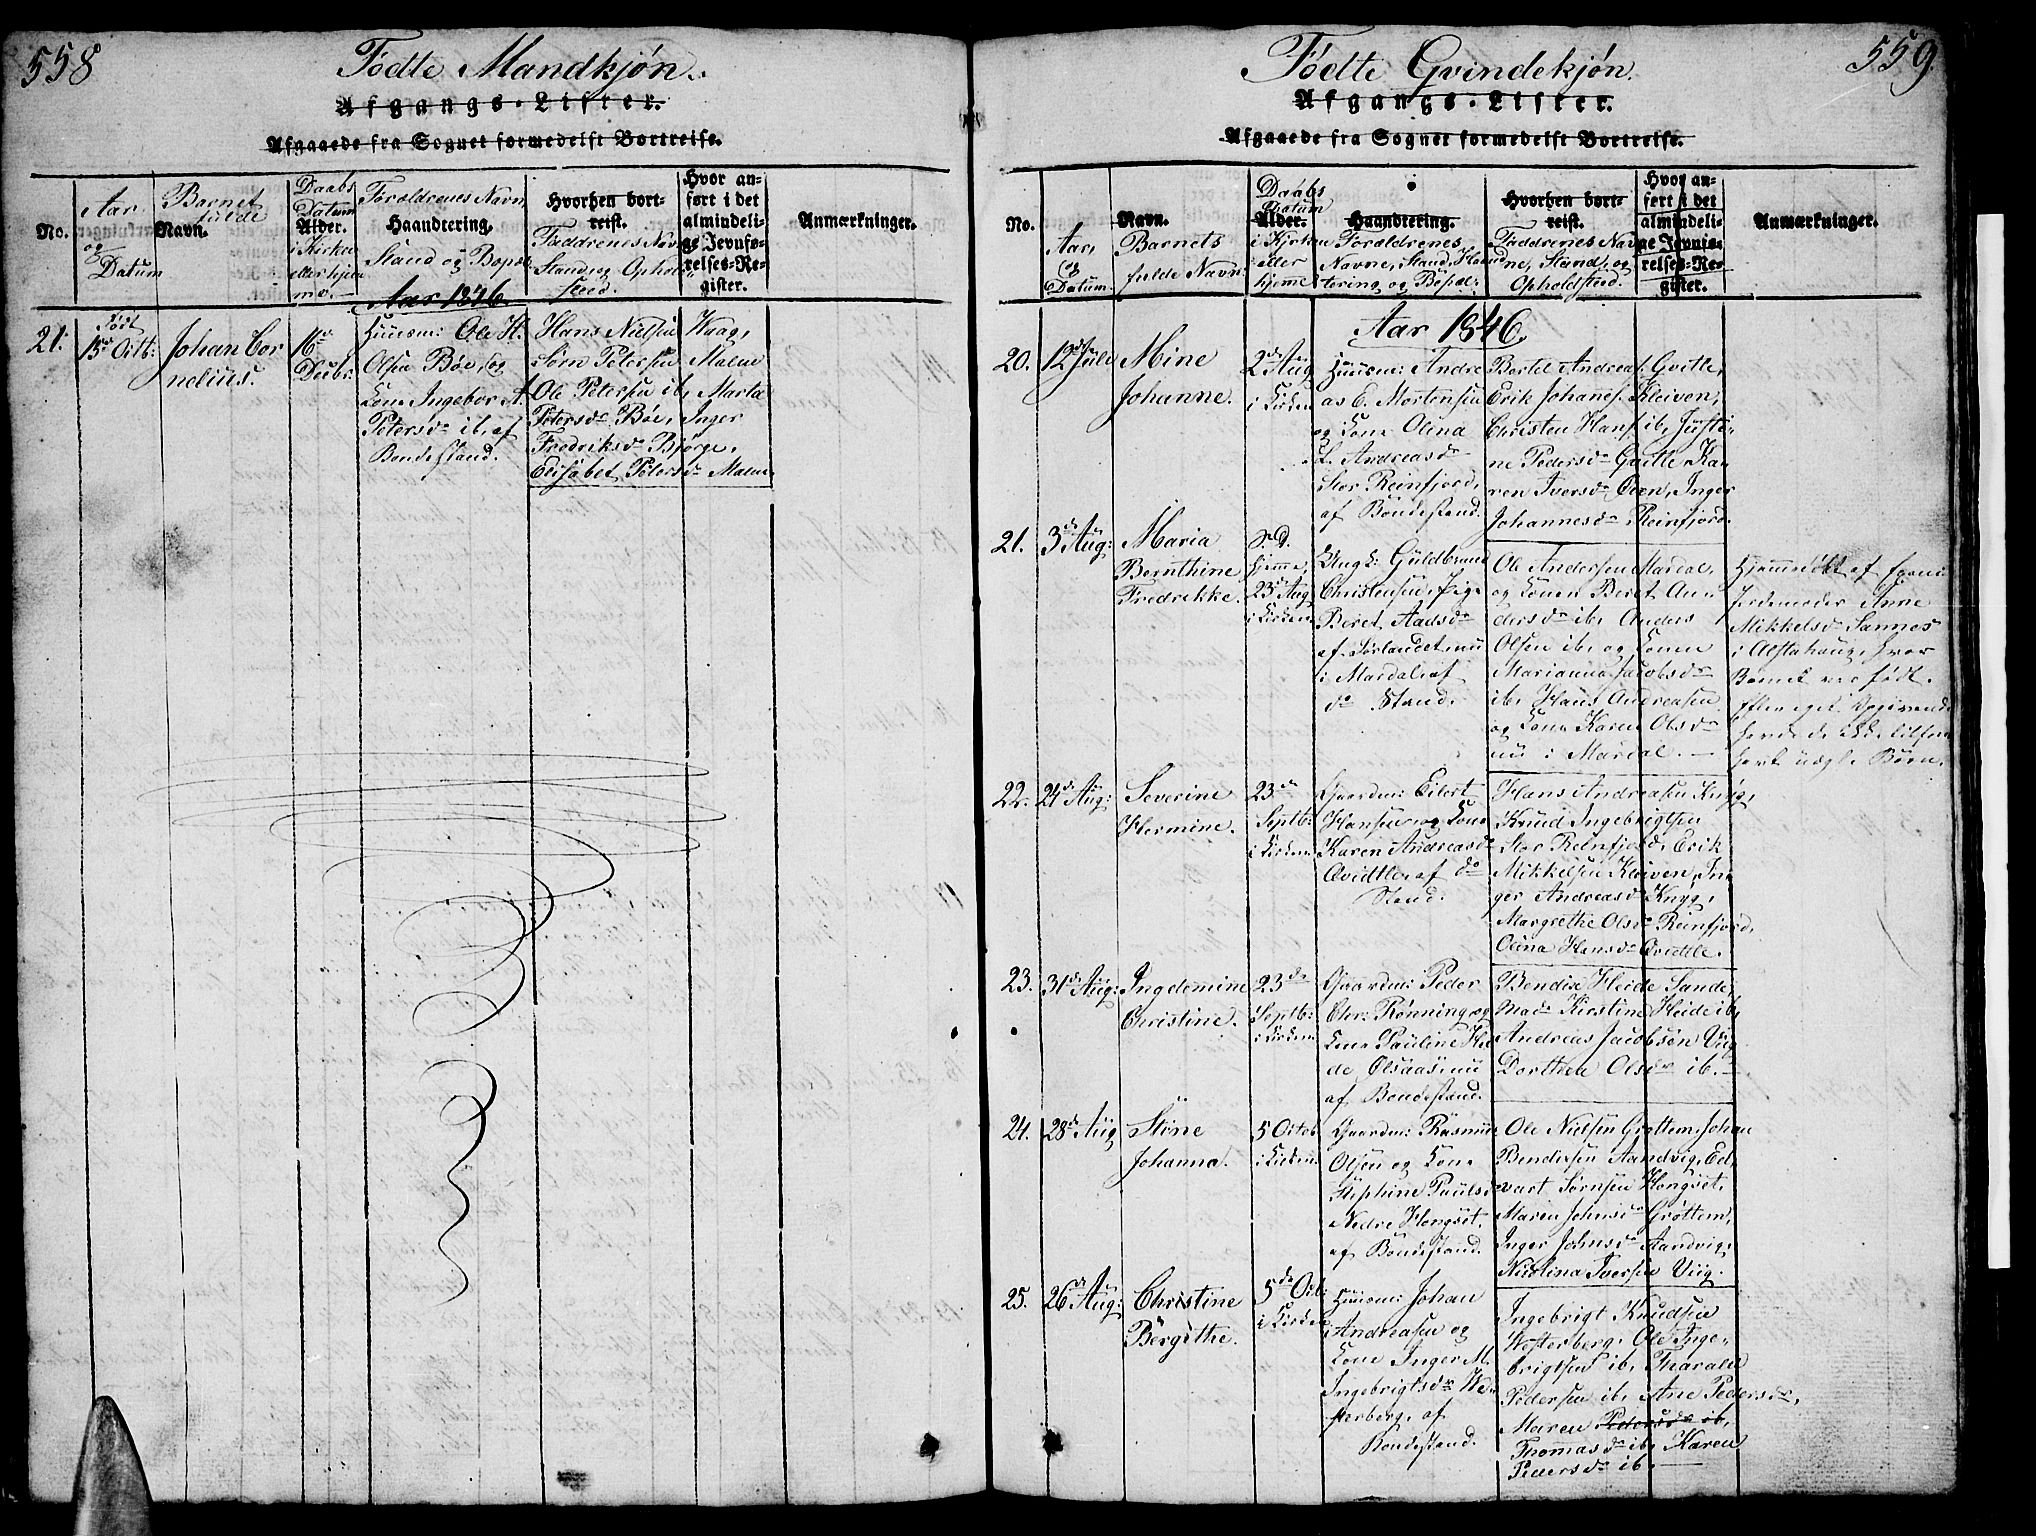 558
Fødte Mandkjøn.
Afgangs-Lister.
Afgaaede fra Sognet formedelst Bortreise.
No.
Aar og Datum
Barnets fulde Navn.
Daabs Datum Alder. i Kirken eller hjemme.
Forældrenes Navn Haandtering. Stand og Bopæl
Hvorhen bortreist. Faddrenes Navn Stand og Opholdssted.
Hvor anført i det almindelige Jevnførelses-Register.
Anmærkninger.
Aar 1846.
21.
Født
15de Octb:
Johan Cornelius.
16de
Decbr:
Huusm: Ole H.
Olsen Bøe, og
Kone Ingebor A.
Petersdr ib, af
Bondestand.
Hans Nielsen Haag,
Sørn Petersen Malm
Ole Petersen ib, Marta
Petersdr Bøe, Inger
Fredriksdr Bjørge,
Elisabet Petersdr Malm.
559.
Fødte Qvindekjøn.
Afgangs-Lister.
Afgaaede fra Sognet formedelst Bortreise.
No.
Aar, og Datum.
Navn. Barnets fulde Navn.
Daabs Datum Alder. i Kirken eller hjemme
Haandtering. Forældrenes Navne, Stand, Haandtering og Bopæl.
Hvorhen bortreist. Faddrenes Navne, Stand, og Opholdsted.
Hvor anført i det almindelige Jevnførelses-Register.
Anmærkninger.
Aar 1846.
20.
12te Julii
Mine
Johanne.
2den Aug
i Kirken
Huusm: Andreas
E. Mortensen
og Kone Olina
L. Andreasdr
Stor Reinfjord,
af Bondestand.
Bertel Andreas. Qvitle,
Erik Johanes. Kleiven,
Christen Hans. ib, Justine
Pedersdr Qvitle, Karen
Iversdr Øien, Inger
Johannesdr Reinfjord.
21.
3de Aug:
Maria
Bernthine
Fredrikke.
hjemme,
23de Aug
i Kirken
Ungk: Guldbrand
Christensen, Pige
Beret Aadsdr
af Sørlandet, nu
i Mardal, af
do Stand.
Ole Andersen Mardal,
og Konen Beret Andersdr
ib, Anders
Olsen ib, og Konen
Marianna Jacobsdr
ib, Hans Andreasen
og Kone Karen Olsdr
nu i Mardal.
Hjemmedøbt af
Jordemoder Anne
Mikkelsdr Sannes
i Alstahaug, hvor
Barnet var født.
Efter eget Opgivende
havde de ikke tilforn
havt uægte Børn.
22.
21de Aug:
Severine
Hermine.
23de
Septb:
i Kirken
Gaardm: Eilert
Hansen og Kone
Karen Andreasdr
Qvidtle, af do
Stand.
Hans Andreasen Knyg,
Knud Ingebrigtsen
Stor Reinfjord, Erik
Mikkelsen Kleiven, Inger
Andreasdr Knyg,
Margrethe Olsdr Reinfjord,
Olina Hansdr Qvidtle.
23.
31de Aug:
Ingelemine
Christine.
23de
Septb:
i Kirken
Gaardm: Peder
Chr: Rønning, og
Kone Pauline Heide
Olsaas, nu
af Bondestand.
Bendix Heide Sande,
Mad: Kirstine Heide ib,
Andreas Jacobsøn Viig
Dorthea Olsdr ib.
24.
28de Aug
Stine
Johanna.
5 Octob
i Kirken
Gaardm: Rasmus
Olsen og Kone
Stephine Paulsdr
Nedre Hongset,
af Bondestand.
Ole Nielsen Grøttem, Johan
Bendixsen Aandvig, Edvart
Sørnsen Hongset,
Maren Johnsdr Grøttem,
Inger Johnsdr Aandvig,
Nicolina Iversen Viig.
25.
26de Aug:
Christine
Bergithe.
5de Octb:
i Kirken
Huusm: Johan
Andreasen og
Kone Inger M.
Ingebrigtsdr Westerberg,
af
Bondestand.
Ingebrigt Knudsen
Westerberg, Ole Ingebrigtsen
ib, Tharald
Pedersen ib, Ane Pedersdr,
Maren Pedersdr ib,
Thomasdr ib, Karen
Pedersdr ib.